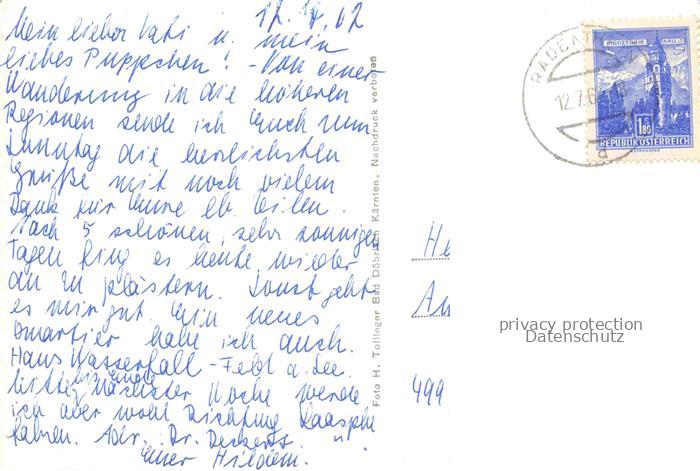 12. 7. 62
Mein lieber Vati u. mein
liebes Püppchen! - Von einer
Wanderung in die höheren
Regionen sende ich Euch zum
Sonntag die herzlichsten
Grüße mit noch vielem
Dank für Eure lb. Zeilen.
Nach 5 schönen, sehr sonnigen
Tagen fing es heute wieder
an zu plästern. Sonst geht
es mir gut. Ein neues
Quartier habe ich auch.
Haus Wasserfall - Feld a. See.
bis Ende
nächster Woche werde
ich aber wohl Richtung Laasphe
fahren. Adr. Dr. Deckert.
Eure
Foto H. Tollinger Bad Döbriach Kärnten. Nachdruck verboten
RADEN
12.7.6
d
1.80
REPUBLIK ÖSTERREICH
He
An
499
privacy protection
Datenschutz